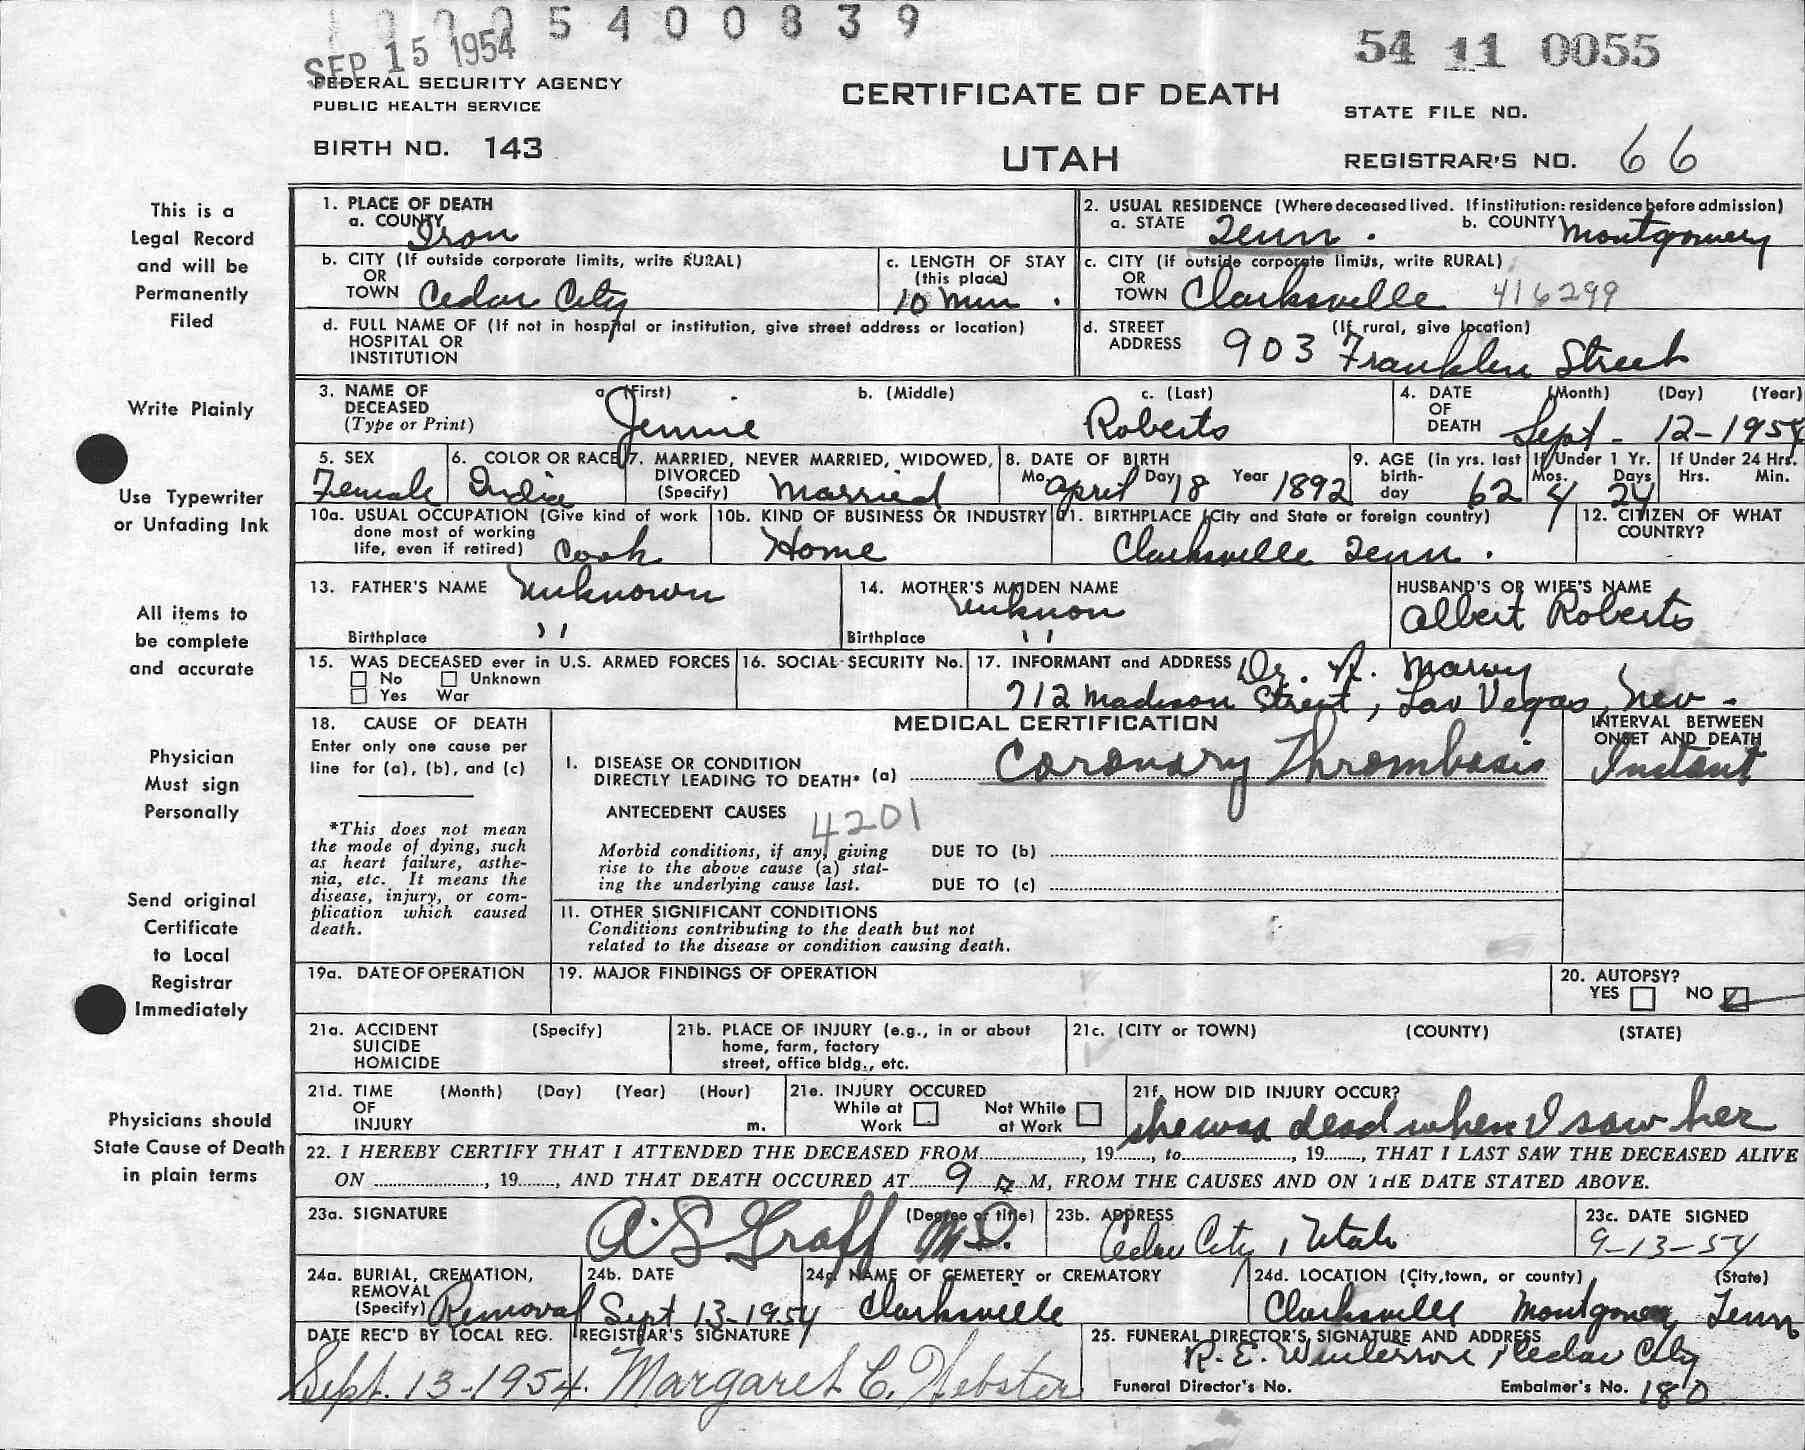 1005400839
SEP 15 1954
54 11 0055
FEDERAL SECURITY AGENCY
PUBLIC HEALTH SERVICE
CERTIFICATE OF DEATH
STATE FILE NO.
BIRTH NO. 143
UTAH
REGISTRAR'S NO. 66
This is a
Legal Record
and will be
Permanently
Filed
Write Plainly
Use Typewriter
or Unfading Ink
All items to
be complete
and accurate
Physician
Must sign
Personally
Send original
Certificate
to Local
Registrar
Immediately
Physicians should
State Cause of Death
in plain terms
1. PLACE OF DEATH
a. COUNTY Iron
2. USUAL RESIDENCE (Where deceased lived. If institution: residence before admission)
a. STATE Tenn. b. COUNTY Montgomery
b. CITY (If outside corporate limits, write RURAL)
OR
TOWN Cedar City
c. LENGTH OF STAY
(this place)
10 Min.
c. CITY (if outside corporate limits, write RURAL)
OR
TOWN Clarksville 416299
d. FULL NAME OF (If not in hospital or institution, give street address or location)
HOSPITAL OR
INSTITUTION
d. STREET (If rural, give location)
ADDRESS 903 Franklin Street
3. NAME OF DECEASED (Type or Print)
a. (First) b. (Middle) c. (Last)
Jennie Roberts
4. DATE OF DEATH (Month) (Day) (Year)
Sept - 12-1954
5. SEX
Female
6. COLOR OR RACE
India
7. MARRIED, NEVER MARRIED, WIDOWED,
DIVORCED
(Specify) Married
8. DATE OF BIRTH
Mo. April Day 18 Year 1892
9. AGE (in yrs. last birth-day 62
If Under 1 Yr. Mos. 4 Days 24
If Under 24 Hrs. Hrs. Min.
10a. USUAL OCCUPATION (Give kind of work
done most of working
life, even if retired) Cook
10b. KIND OF BUSINESS OR INDUSTRY
Home
11. BIRTHPLACE (City and State or foreign country)
Clarksville Tenn.
12. CITIZEN OF WHAT
COUNTRY?
13. FATHER'S NAME Unknown
Birthplace ''
14. MOTHER'S MAIDEN NAME
Unknon
Birthplace ''
HUSBAND'S OR WIFE'S NAME
Albert Roberts
15. WAS DECEASED ever in U.S. ARMED FORCES
No Unknown
Yes War
16. SOCIAL SECURITY No.
17. INFORMANT and ADDRESS Dr. R.
712 Madison Street, Las Vegas, Nev.
18. CAUSE OF DEATH
Enter only one cause per
line for (a), (b), and (c)
*This does not mean
the mode of dying, such
as heart failure, asthe-
nia, etc. It means the
disease, injury, or com-
plication which caused
death.
MEDICAL CERTIFICATION
INTERVAL BETWEEN
ONSET AND DEATH
I. DISEASE OR CONDITION
DIRECTLY LEADING TO DEATH* (a) Coronary Thrombosis
Instant
ANTECEDENT CAUSES
4201
Morbid conditions, if any, giving
rise to the above cause (a) stat-
ing the underlying cause last.
DUE TO (b)
DUE TO (c)
II. OTHER SIGNIFICANT CONDITIONS
Conditions contributing to the death but not
related to the disease or condition causing death.
19a. DATE OF OPERATION
19. MAJOR FINDINGS OF OPERATION
20. AUTOPSY?
YES NO
21a. ACCIDENT (Specify)
SUICIDE
HOMICIDE
21b. PLACE OF INJURY (e.g., in or about
home, farm, factory
street, office bldg., etc.
21c. (CITY or TOWN) (COUNTY) (STATE)
21d. TIME (Month) (Day) (Year) (Hour)
OF
INJURY m.
21e. INJURY OCCURED
While at Work Not While at Work
21f. HOW DID INJURY OCCUR?
she was dead when I saw her
22. I HEREBY CERTIFY THAT I ATTENDED THE DECEASED FROM, 19, to, 19, THAT I LAST SAW THE DECEASED ALIVE
ON, 19, AND THAT DEATH OCCURED AT 9 A M, FROM THE CAUSES AND ON THE DATE STATED ABOVE.
23a. SIGNATURE (Degree or title)
A S Graff M.D.
23b. ADDRESS
Cedar City, Utah
23c. DATE SIGNED
9-13-54
24a. BURIAL, CREMATION,
REMOVAL
(Specify) Removal
24b. DATE
Sept 13-1954
24c. NAME OF CEMETERY or CREMATORY
Clarksville
24d. LOCATION (City, town, or county) (State)
Clarksville Montgomery Tenn
DATE REC'D BY LOCAL REG.
Sept. 13-1954.
REGISTRAR'S SIGNATURE
Margaret C. Webster
25. FUNERAL DIRECTOR'S SIGNATURE AND ADDRESS
R. E. Cedar City
Funeral Director's No. Embalmer's No. 180